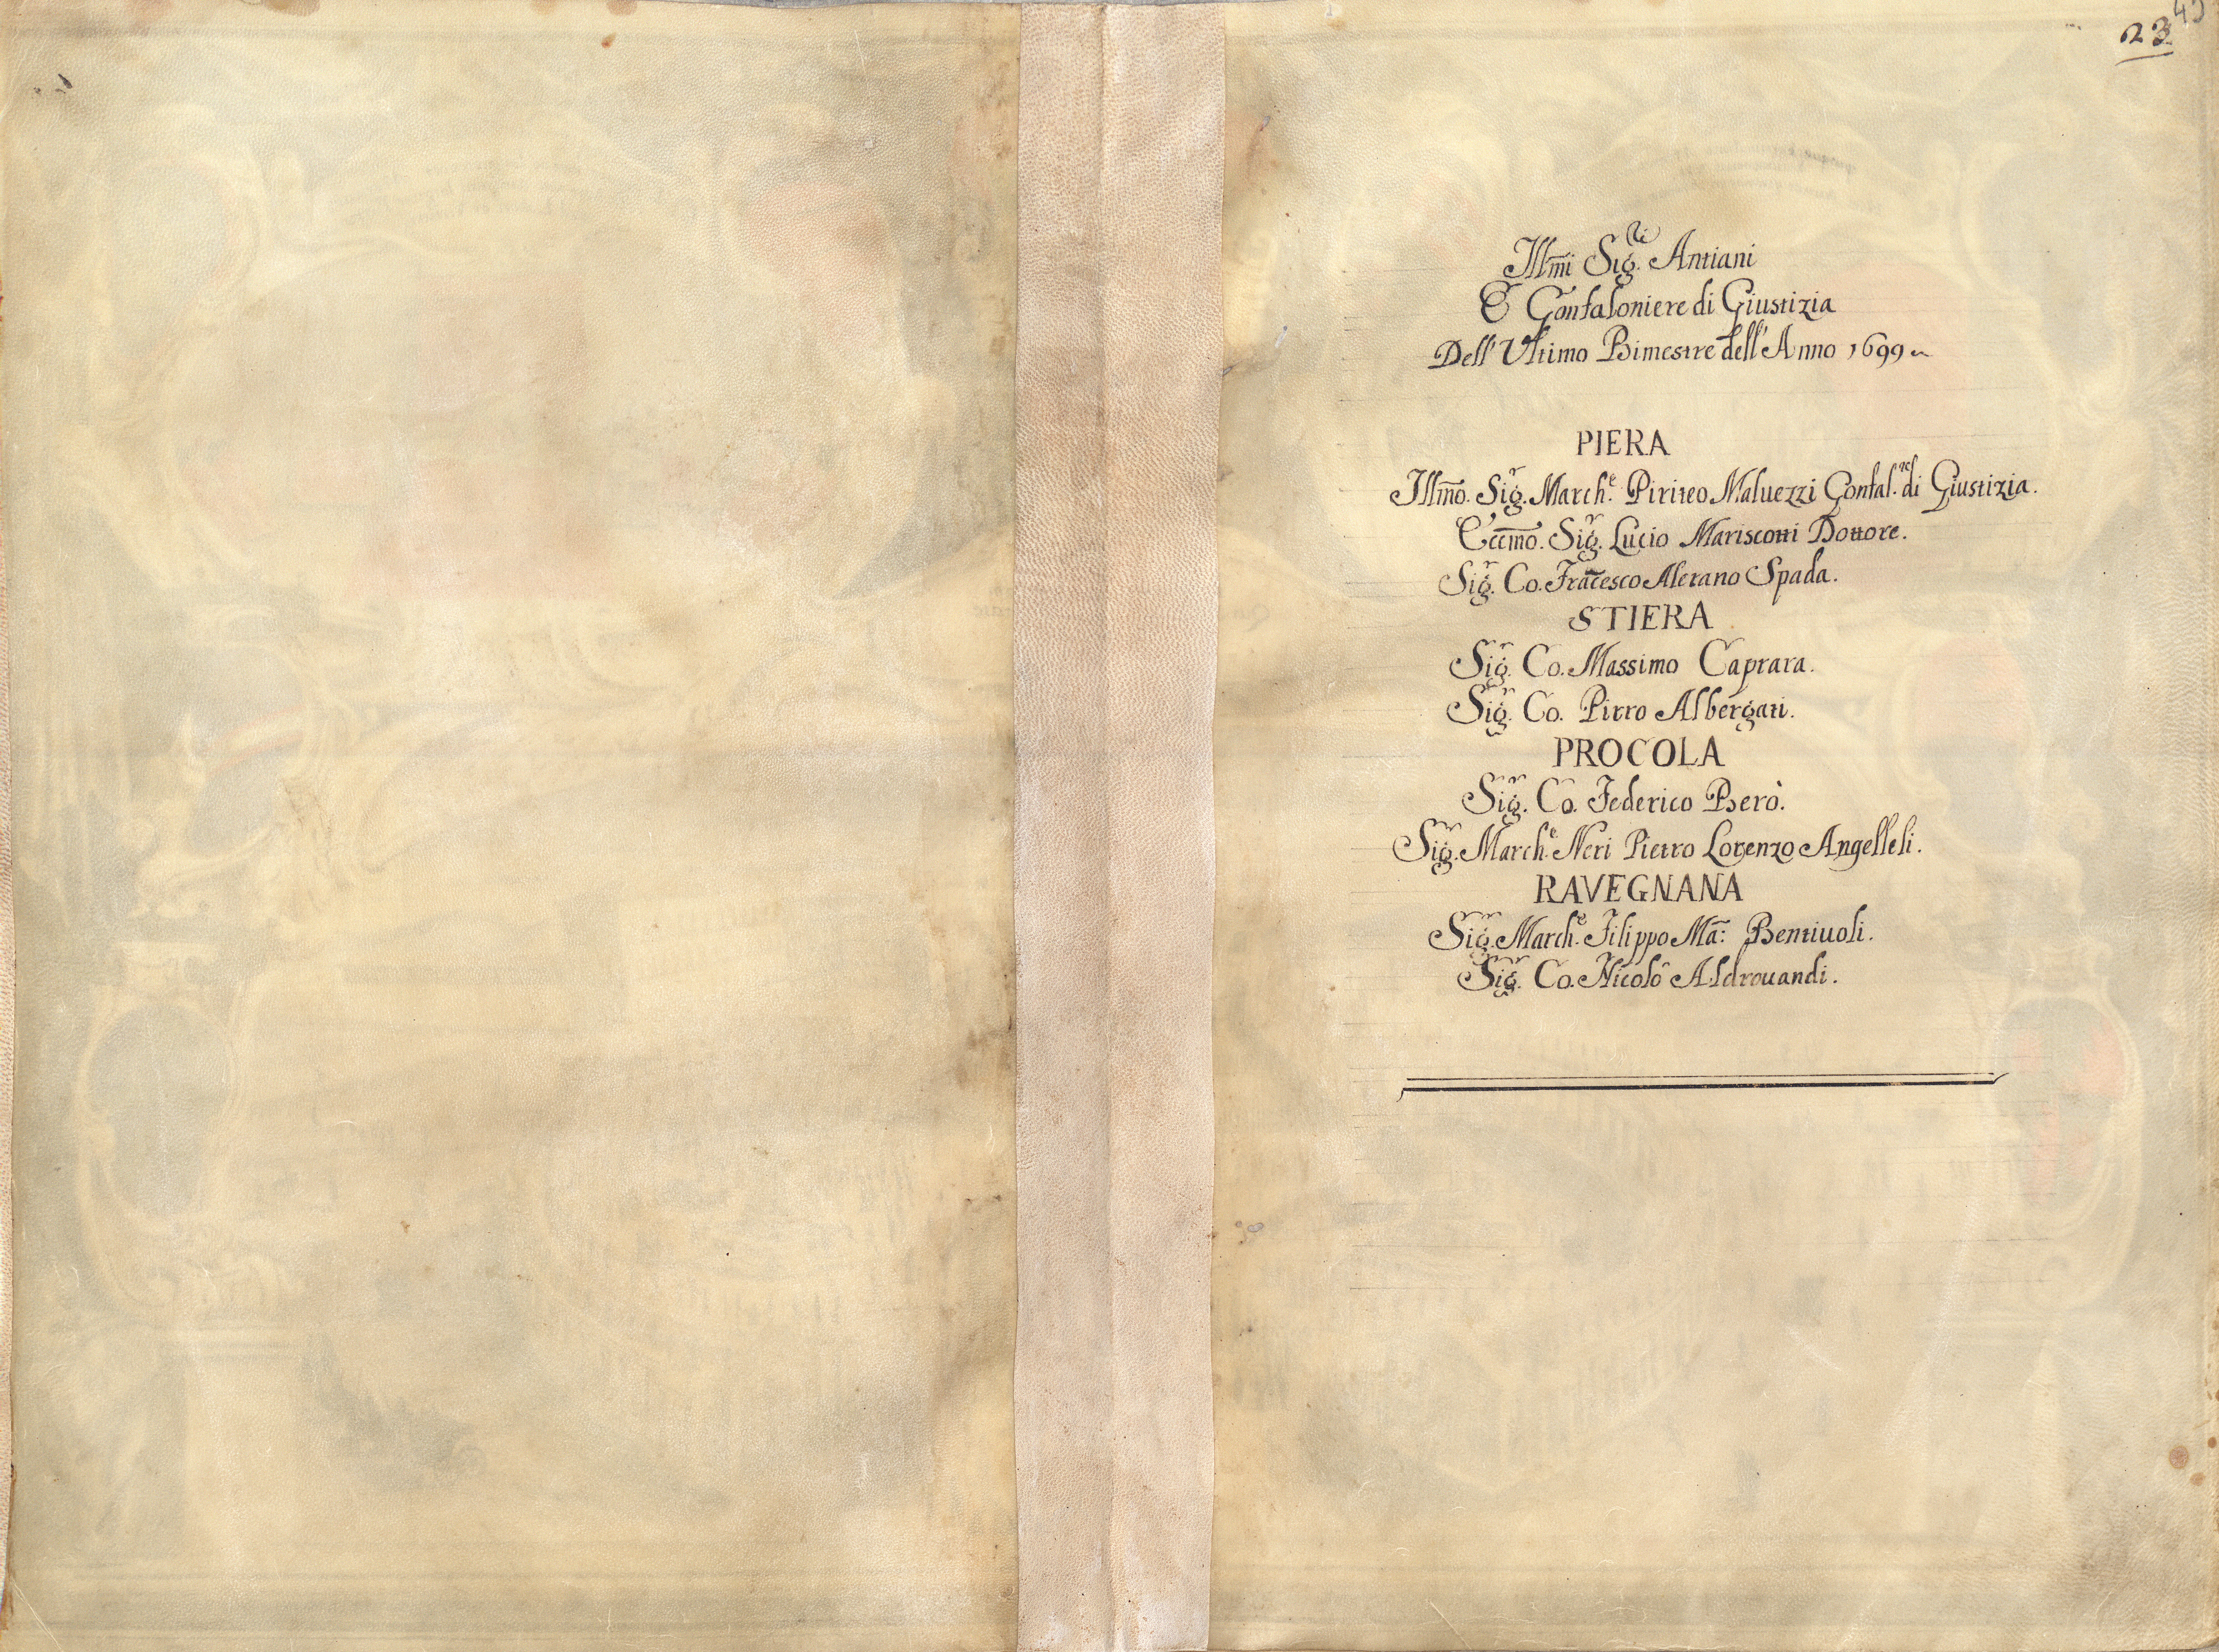 23
Illm̃i Sig.ri Antiani
E Gonfaloniere di Giustizia
Dell' Vltimo Bimestre dell' Anno 1699
PIERA
Illm̃o. Sig.r March.e Piriteo Maluezzi Gonfal.re di Giustizia.
Eccm̃o. Sig.r Lucio Mariscotti Dottore.
Sig.r Co. Frãcesco Alerano Spada.
STIERA
Sig.r Co. Massimo Caprara.
Sig.r Co. Pirro Albergati.
PROCOLA
Sig.r Co. Federico Berò.
Sig.r March.e Neri Pietro Lorenzo Angelleli.
RAVEGNANA
Sig.r March.e Filippo Mã: Bentiuoli.
Sig.r Co. Nicolò Aldrouandi.